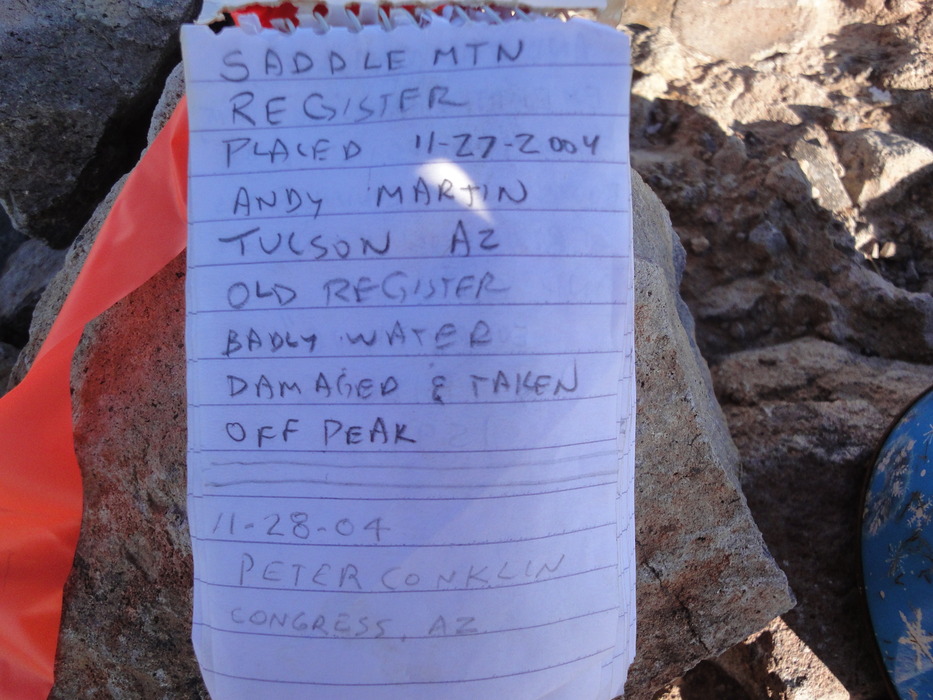 SADDLE MTN
REGISTER
PLACED 11-27-2004
ANDY MARTIN
TUCSON AZ
OLD REGISTER
BADLY WATER
DAMAGED & TAKEN
OFF PEAK
11-28-04
PETER CONKLIN
CONGRESS, AZ